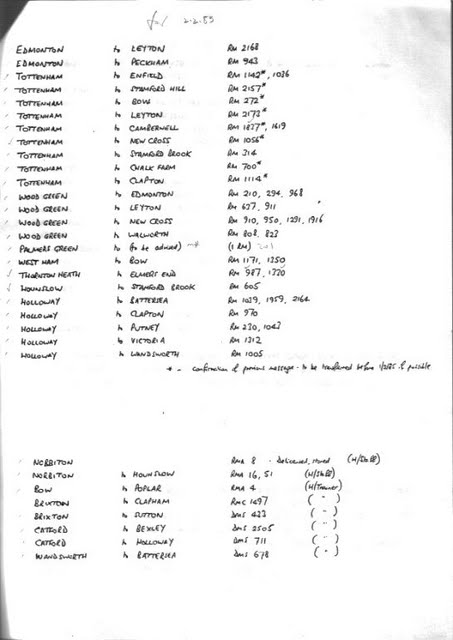 for 2.2.85
EDMONTON to LEYTON RM 2168
EDMONTON to PECKHAM RM 943
TOTTENHAM to ENFIELD RM 1142*, 1036
TOTTENHAM to STAMFORD HILL RM 2157*
TOTTENHAM to BOW RM 272*
TOTTENHAM to LEYTON RM 2173*
TOTTENHAM to CAMBERWELL RM 1837*, 1619
TOTTENHAM to NEW CROSS RM 1056*
TOTTENHAM to STAMFORD BROOK RM 314
TOTTENHAM to CHALK FARM RM 700*
TOTTENHAM to CLAPTON RM 1114*
WOOD GREEN to EDMONTON RM 210, 294, 968
WOOD GREEN to LEYTON RM 627, 911
WOOD GREEN to NEW CROSS RM 910, 950, 1291, 1916
WOOD GREEN to WALWORTH RM 808, 823
PALMERS GREEN to (to be advised) (1 RM)
WEST HAM to BOW RM 1171, 1250
THORNTON HEATH to ELMERS END RM 987, 1330
HOUNSLOW to STAMFORD BROOK RM 605
HOLLOWAY to BATTERSEA RM 1029, 1959, 2164
HOLLOWAY to CLAPTON RM 970
HOLLOWAY to PUTNEY RM 230, 1043
HOLLOWAY to VICTORIA RM 1312
HOLLOWAY to WANDSWORTH RM 1005
* - confirmation of previous message - to be transferred before 1/2/85 if possible
NORBITON RMA 8 - Delicensed, stored (H/Staff)
NORBITON to HOUNSLOW RMA 16, 51 (H/Staff)
BOW to POPLAR RMA 4 (H/Trainer)
BRIXTON to CLAPHAM RMC 1497 ( " )
BRIXTON to SUTTON DMS 423 ( " )
CATFORD to BEXLEY DMS 2505 ( " )
CATFORD to HOLLOWAY DMS 711 ( " )
WANDSWORTH to BATTERSEA DMS 678 ( " )